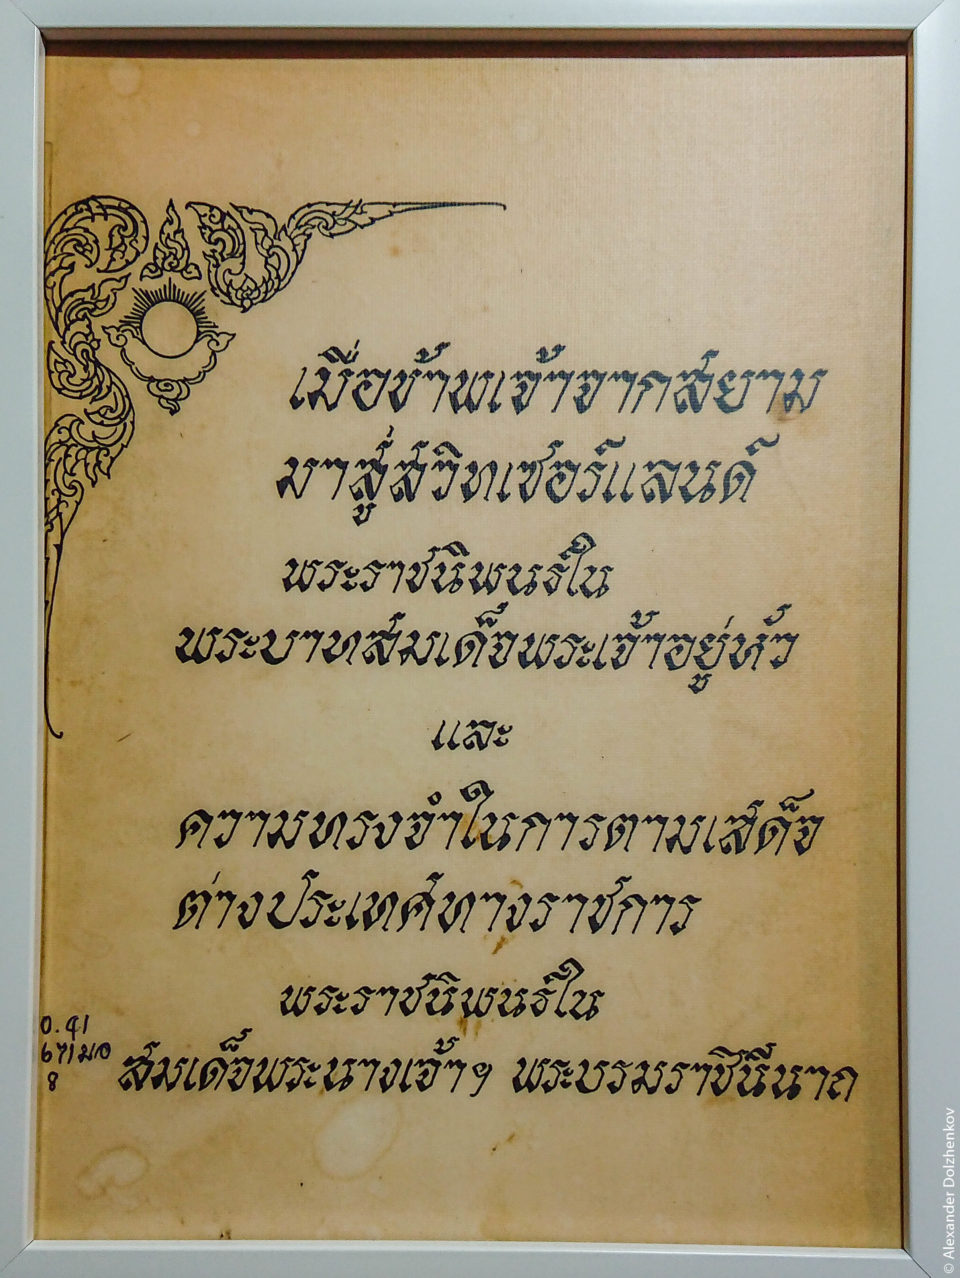 เมื่อข้าพเจ้าจากสยาม
มาสู่สวิทเซอร์แลนด์
พระราชนิพนธ์ใน
พระบาทสมเด็จพระเจ้าอยู่หัว
และ
ความทรงจำในการตามเสด็จ
ต่างประเทศทางราชการ
พระราชนิพนธ์ใน
สมเด็จพระนางเจ้าฯ พระบรมราชินีนาถ
8
© Alexander Dolzhenkov